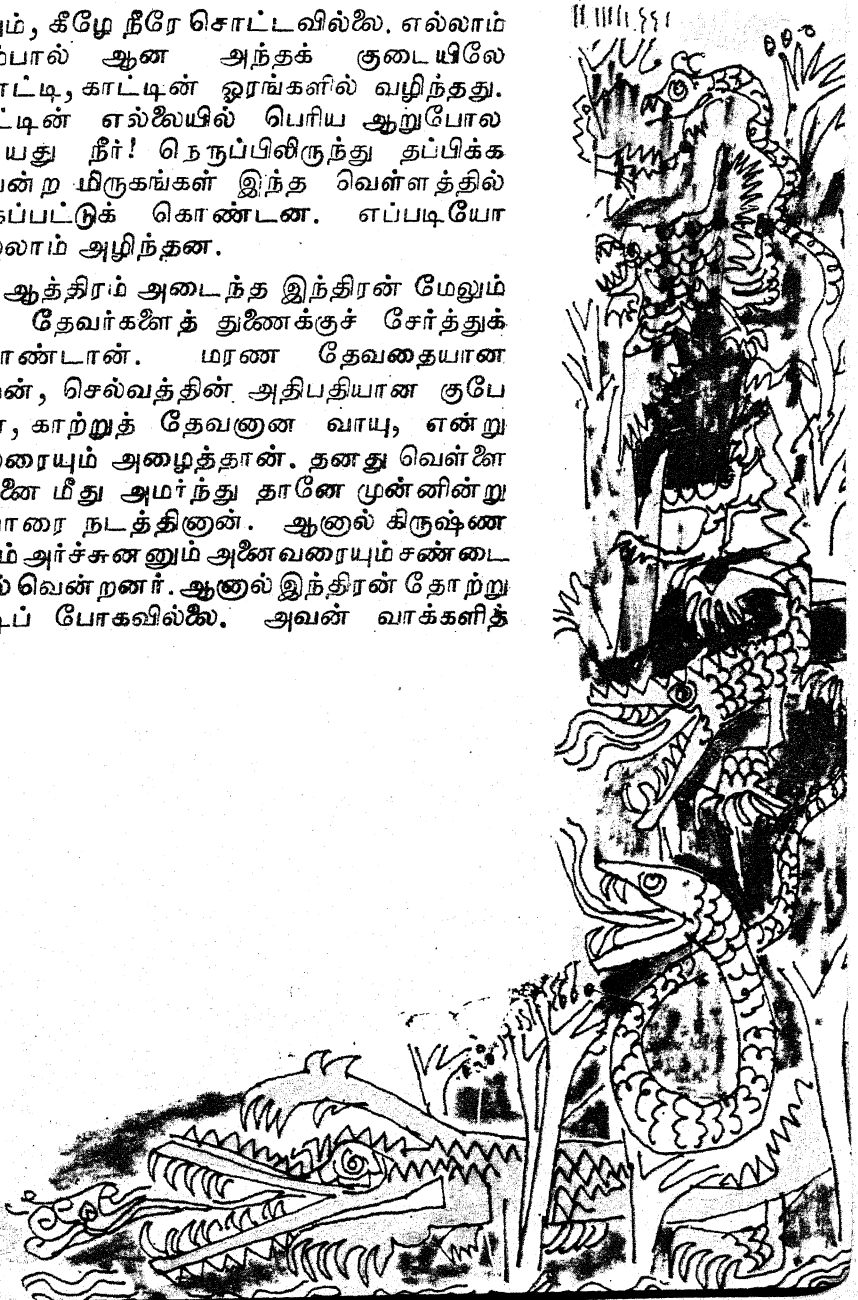 ும், கீழே நீரே சொட்டவில்லை. எல்லாம்
ம்பால் ஆன அந்தக் குடையிலே
ாட்டி, காட்டின் ஓரங்களில் வழிந்தது.
ட்டின் எல்லையில் பெரிய ஆறுபோல
யது நீர்! நெருப்பிலிருந்து தப்பிக்க
ன்ற மிருகங்கள் இந்த வெள்ளத்தில்
ப்பட்டுக் கொண்டன. எப்படியோ
லாம் அழிந்தன.
ஆத்திரம் அடைந்த இந்திரன் மேலும்
தேவர்களைத் துணைக்குச் சேர்த்துக்
ாண்டான். மரண தேவதையான
ன், செல்வத்தின் அதிபதியான குபே
, காற்றுத் தேவனான வாயு, என்று
ரையும் அழைத்தான். தனது வெள்ளை
னை மீது அமர்ந்து தானே முன்னின்று
ாரை நடத்தினான். ஆனால் கிருஷ்ண
ம் அர்ச்சுனனும் அனைவரையும் சண்டை
ல் வென்றனர். ஆனால் இந்திரன் தோற்று
டிப் போகவில்லை. அவன் வாக்களித்